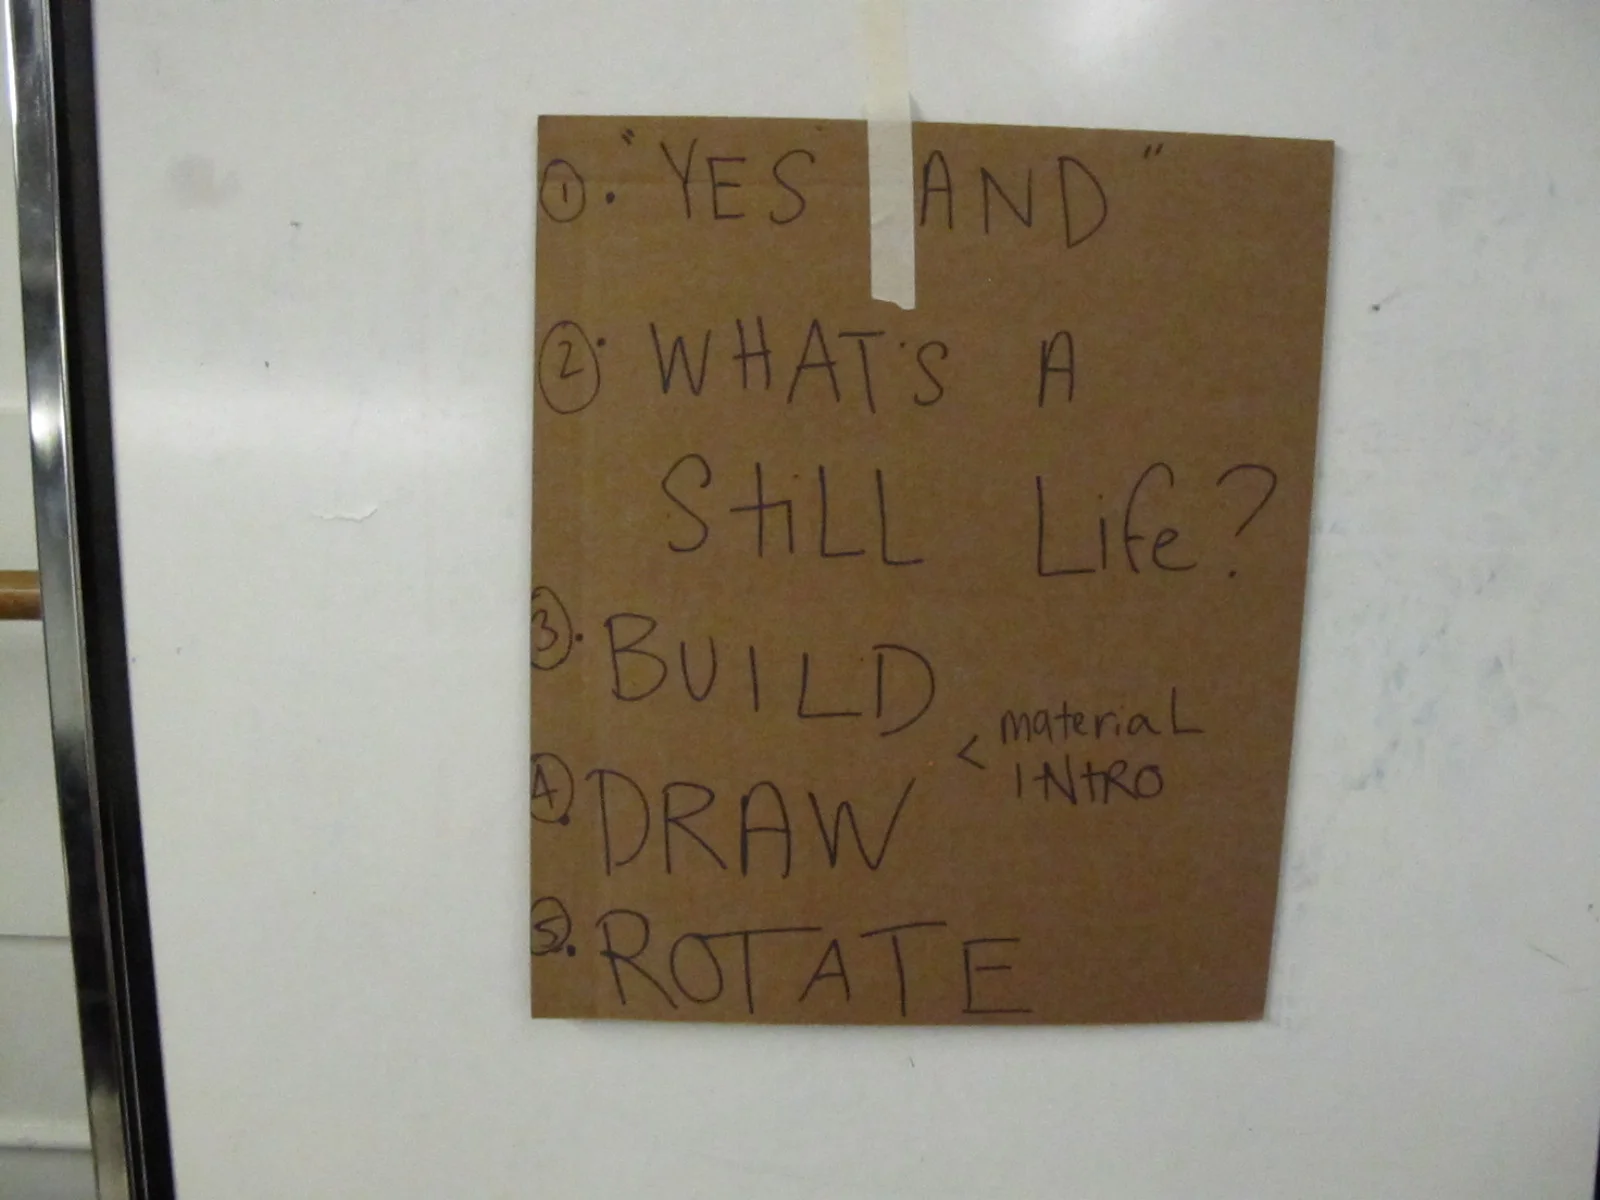 ①. "YES AND"
②. WHAT'S A
StiLL Life?
③. BUILD
< materiaL
INtRO
④. DRAW
⑤. ROTATE